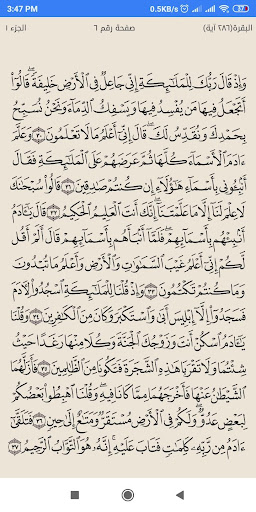 3:47 PM 0.5KB/s
البقرة(٢٨٦ آية) صفحة رقم ٦ الجزء ١
وَإِذْ قَالَ رَبُّكَ لِلْمَلَٰٓئِكَةِ إِنِّى جَاعِلٌ فِى ٱلْأَرْضِ خَلِيفَةً ۖ قَالُوٓا۟
أَتَجْعَلُ فِيهَا مَن يُفْسِدُ فِيهَا وَيَسْفِكُ ٱلدِّمَآءَ وَنَحْنُ نُسَبِّحُ
بِحَمْدِكَ وَنُقَدِّسُ لَكَ ۖ قَالَ إِنِّىٓ أَعْلَمُ مَا لَا تَعْلَمُونَ ٣٠ وَعَلَّمَ
ءَادَمَ ٱلْأَسْمَآءَ كُلَّهَا ثُمَّ عَرَضَهُمْ عَلَى ٱلْمَلَٰٓئِكَةِ فَقَالَ
أَنۢبِـُٔونِى بِأَسْمَآءِ هَٰٓؤُلَآءِ إِن كُنتُمْ صَٰدِقِينَ ٣١ قَالُوا۟ سُبْحَٰنَكَ
لَا عِلْمَ لَنَآ إِلَّا مَا عَلَّمْتَنَآ ۖ إِنَّكَ أَنتَ ٱلْعَلِيمُ ٱلْحَكِيمُ ٣٢ قَالَ يَٰٓـَٔادَمُ
أَنۢبِئْهُم بِأَسْمَآئِهِمْ ۖ فَلَمَّآ أَنۢبَأَهُم بِأَسْمَآئِهِمْ قَالَ أَلَمْ أَقُل
لَّكُمْ إِنِّىٓ أَعْلَمُ غَيْبَ ٱلسَّمَٰوَٰتِ وَٱلْأَرْضِ وَأَعْلَمُ مَا تُبْدُونَ
وَمَا كُنتُمْ تَكْتُمُونَ ٣٣ وَإِذْ قُلْنَا لِلْمَلَٰٓئِكَةِ ٱسْجُدُوا۟ لِـَٔادَمَ
فَسَجَدُوٓا۟ إِلَّآ إِبْلِيسَ أَبَىٰ وَٱسْتَكْبَرَ وَكَانَ مِنَ ٱلْكَٰفِرِينَ ٣٤ وَقُلْنَا
يَٰٓـَٔادَمُ ٱسْكُنْ أَنتَ وَزَوْجُكَ ٱلْجَنَّةَ وَكُلَا مِنْهَا رَغَدًا حَيْثُ
شِئْتُمَا وَلَا تَقْرَبَا هَٰذِهِ ٱلشَّجَرَةَ فَتَكُونَا مِنَ ٱلظَّٰلِمِينَ ٣٥ فَأَزَلَّهُمَا
ٱلشَّيْطَٰنُ عَنْهَا فَأَخْرَجَهُمَا مِمَّا كَانَا فِيهِ ۖ وَقُلْنَا ٱهْبِطُوا۟ بَعْضُكُمْ
لِبَعْضٍ عَدُوٌّ ۖ وَلَكُمْ فِى ٱلْأَرْضِ مُسْتَقَرٌّ وَمَتَٰعٌ إِلَىٰ حِينٍ ٣٦ فَتَلَقَّىٰٓ
ءَادَمُ مِن رَّبِّهِۦ كَلِمَٰتٍ فَتَابَ عَلَيْهِ ۚ إِنَّهُۥ هُوَ ٱلتَّوَّابُ ٱلرَّحِيمُ ٣٧